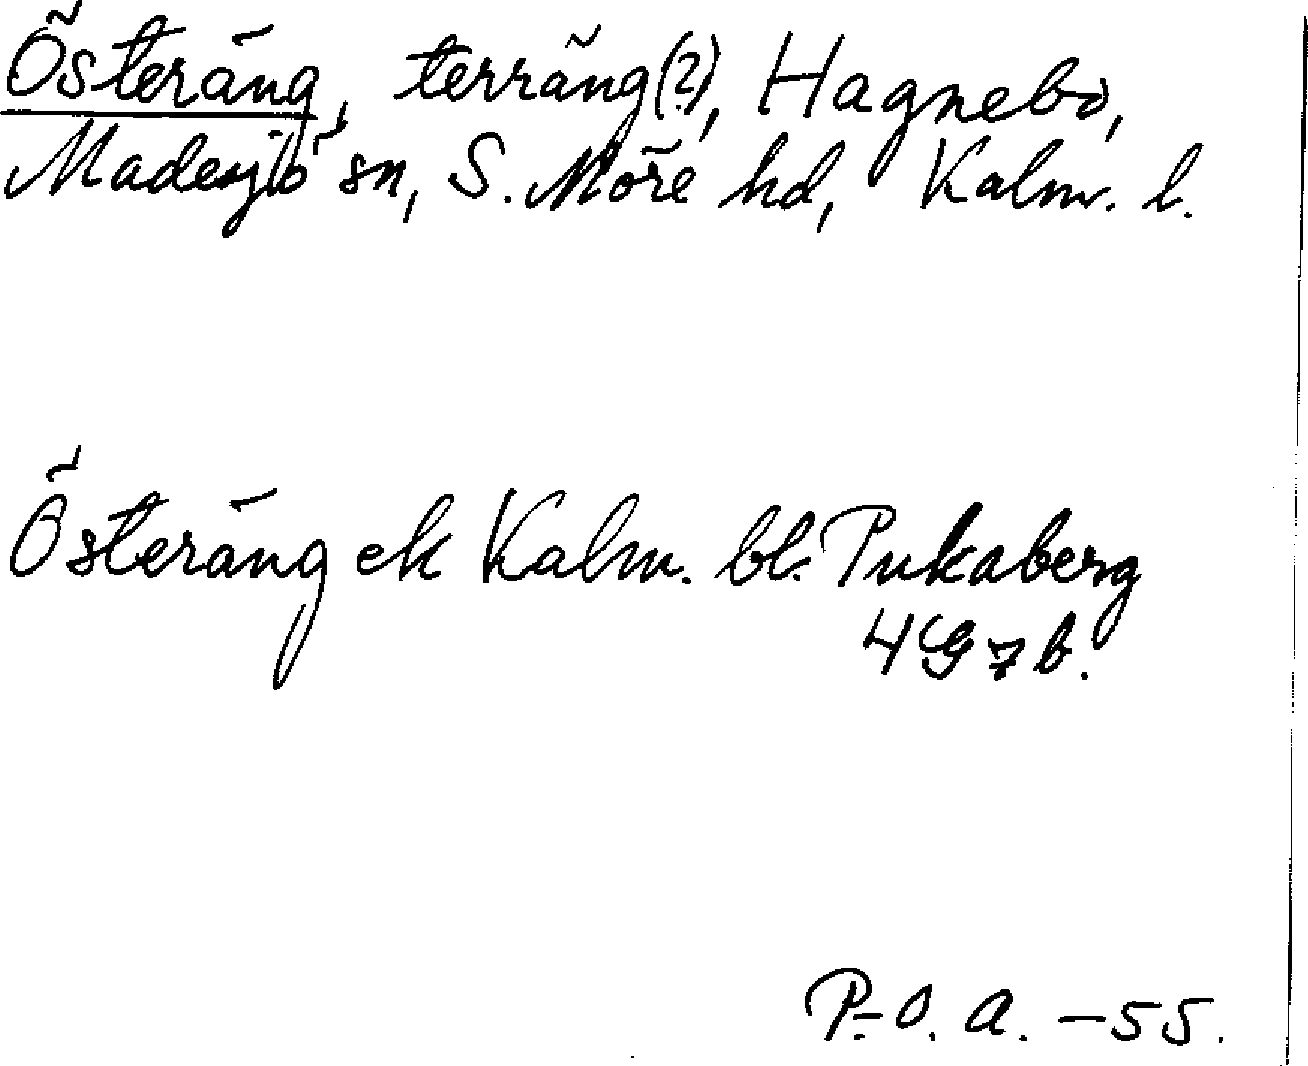 Österäng, terräng(?), Hagnebo,
Madesjö sn, S. Möre hd, Kalm. l.
Österäng ek Kalm. bl. Pukaberg
4G7b.
P.-O. A. -55.